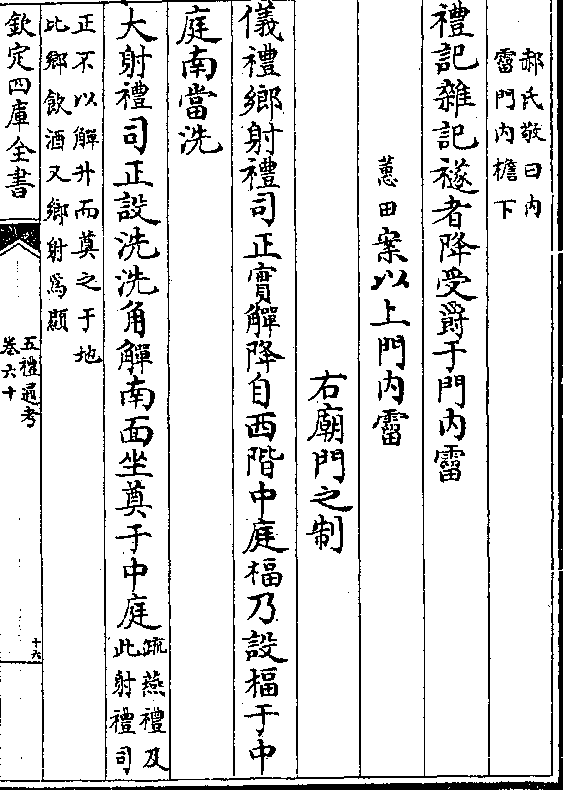 郝氏敬曰内
霤門内檐下
禮記雜記禭者降受爵于門内霤
蕙田案以上門内霤
右廟門之制
儀禮鄉射禮司正實觶降自西階中庭楅乃設楅于中
庭南當洗
大射禮司正設洗洗角觶南面坐奠于中庭
疏燕禮及
此射禮司
正不以觶升而奠之于地
比鄉飲酒又鄉射爲顯
欽定四庫全書
五禮通考
卷六十
十六